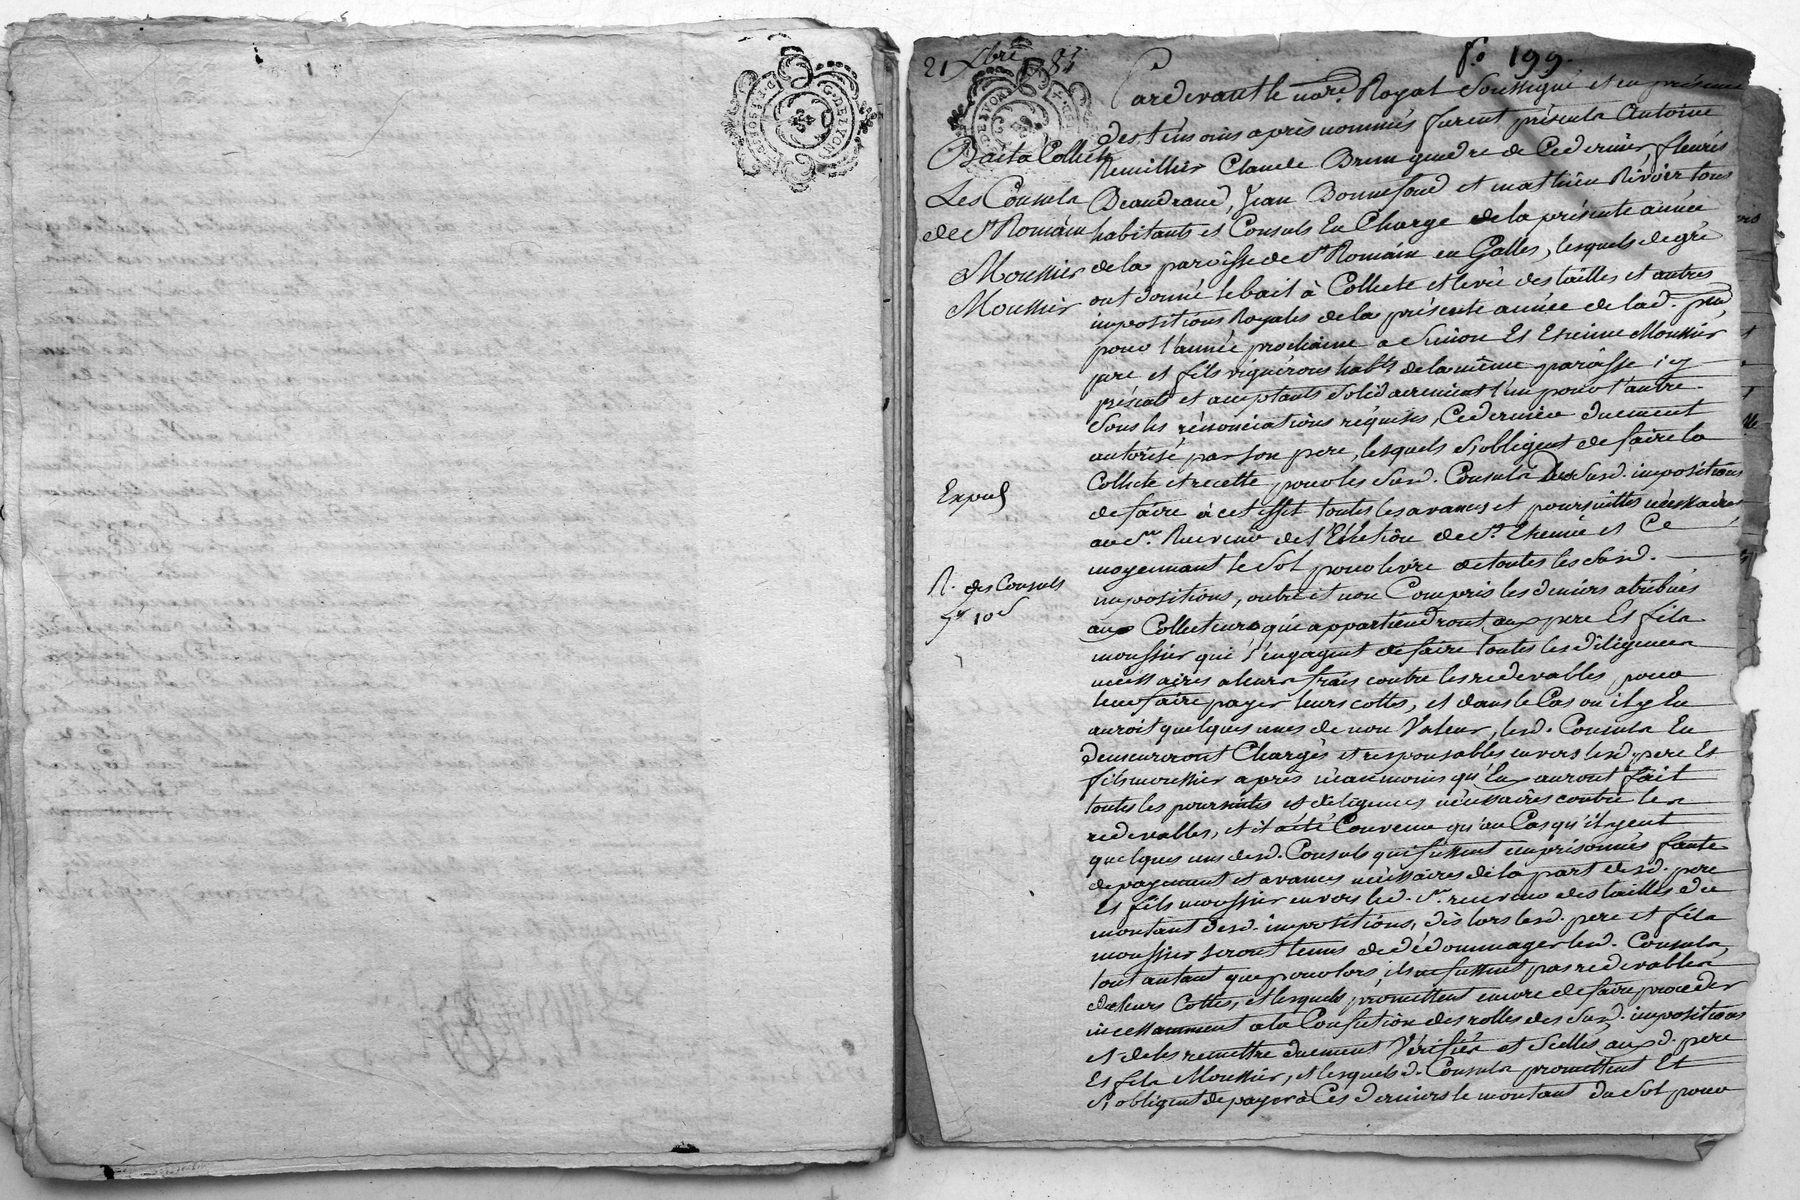 G. DE LYON
21 Xbre 1785
fo. 199.
Bail a Collecte
Les Consuls
de St Romain
Moussier
Moussier
Exped
R. des Consuls
10 s
Pardevant le nore. Royal Soussigné et en présence
des témoins après nommés furent présents Antoine
Remillier Claude Brun gendre de Cedernier, fleuris
Beaudrand, Jean Bonnefond et mathieu Rivoir tous
habitants et Consuls En Charge de la présente année
de la paroisse de St Romain en Galles, lesquels de gré
ont donné le bail à Collecte et levée des tailles et autres
impositions Royales de la présente année de lad. psse,
pour l'année prochaine a Simon Et Etienne Moussier
pere et fils vignerons habts de la même paroisse icy
présents et acceptants Solidairement l'un pour l'autre.
Sous les rénonciations réquises, Cedernier duement
autorisé par son pere, lesquels s'obligent de faire la
Collecte et recette pour les Susd. Consuls des Susd. impositions
de faire à cet effet toutes les avances et poursuittes nécessaires
au Sr. Receveur de l'Election de St. Etienne et Ce
moyennant le Sol pour livre de toutes les Susd.
impositions, outre et non Compris les deniers atribués
aux Collecteurs qui appartiendront aux pere Et fils
moussier qui s'engagent de faire toutes les diligences
nécessaires a leurs frais contre les redevables, pour
leur faire payer leurs cottes, et dans le Cas ou il y En
auroit quelques unes de non Valeur, lesd. Consuls En
demeureront Chargés et responsables envers lesd. pere Et
fils moussier après néanmoins qu'Eux auront fait
toutes les poursuites et diligences nécessaires contre les
redevables, et il a été Convenu qu'au Cas qu'il y eut
quelques uns desd. Consuls qui fussent emprisonnés faute
de payement et avances nécessaires de la part desd. pere
Et fils moussier envers led. Sr. receveur des tailles du
montant desd. impositions, dès lors lesd. pere et fils
moussier seront tenus de dédommager lesd. Consuls,
tout autant que pour lors ils ne fussent pas redevables
de leurs Cottes, et lesquels promettent encore de faire proceder
incessamment a la Confection des rolles des Susd. impositions
et de les remettre duement Vérifiés et Scellés auxd. pere
Et fils Moussier, et lesquels d. Consuls promettent Et
s'obligent de payer à Ces derniers le montant du Sol pour